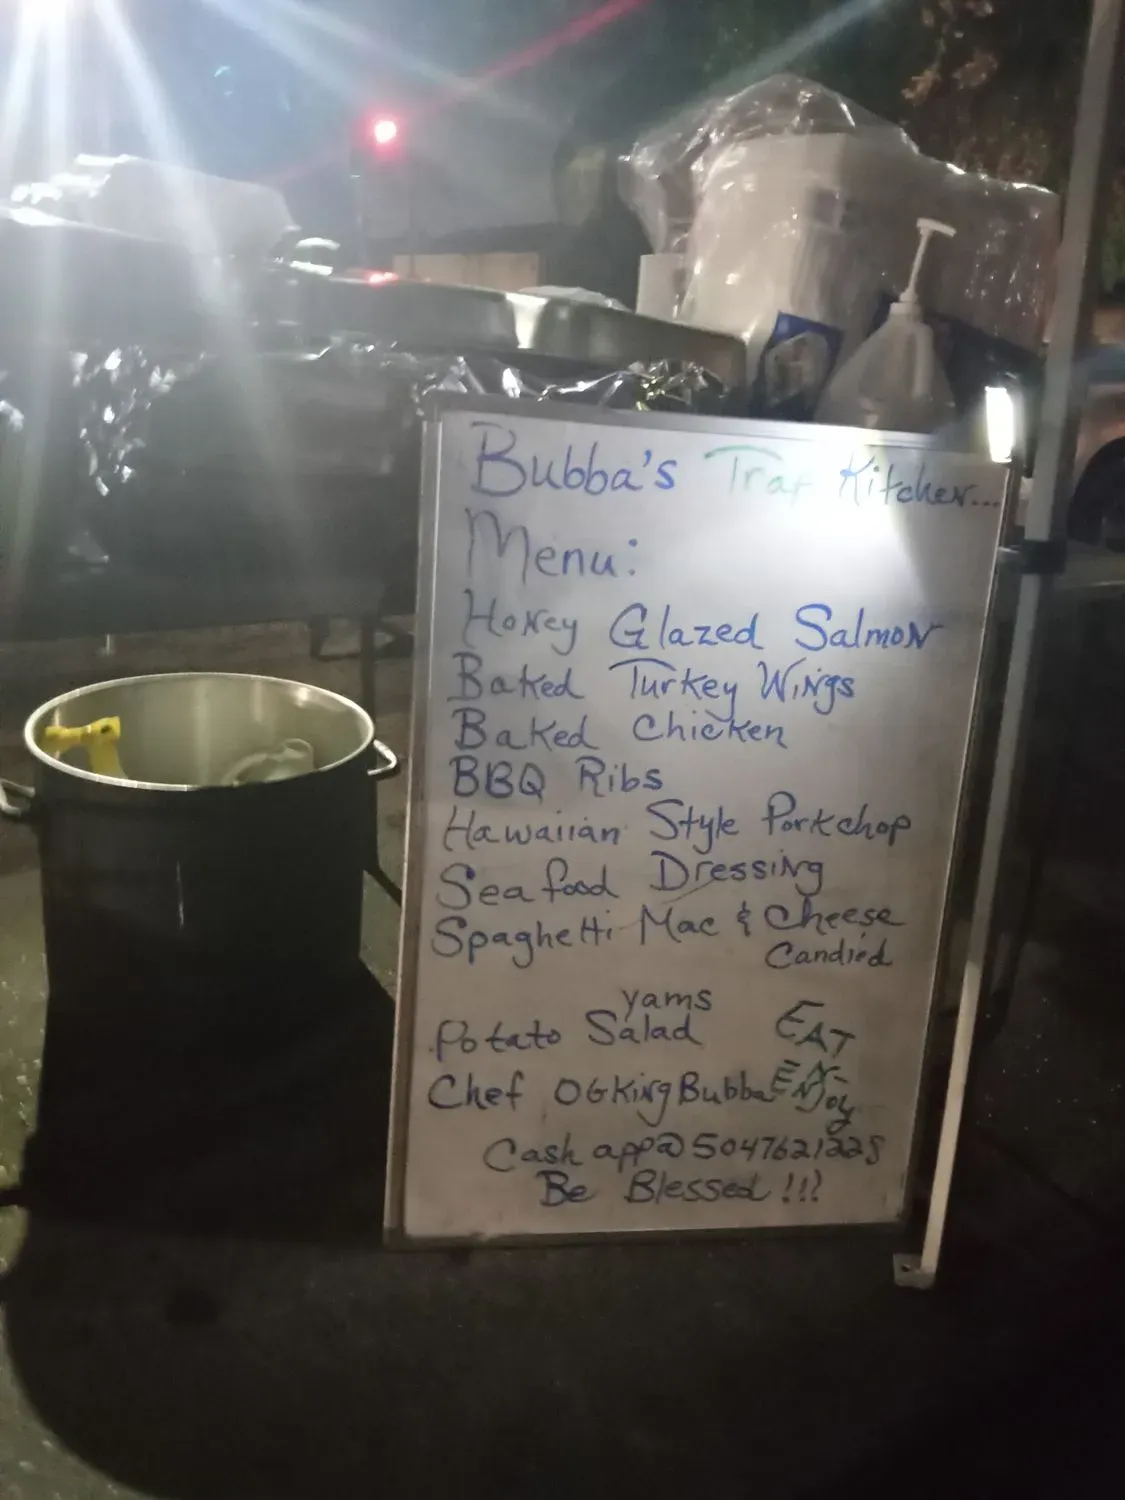 Bubba's Trap Kitchen...
Menu:
Honey Glazed Salmon
Baked Turkey Wings
Baked Chicken
BBQ Ribs
Hawaiian Style Porkchop
Seafood Dressing
Spaghetti Mac & Cheese
Candied
yams
Potato Salad
EAT
Chef OGKingBubba
EN-
ENJoy
Cash app@5047621228
Be Blessed!!!